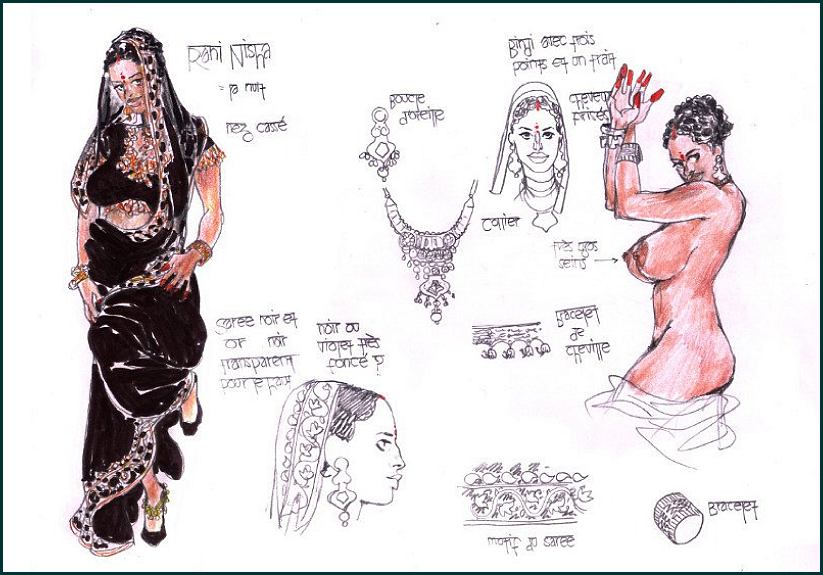 Rani Nisha
= la nuit
nez cassé
Boucle
d'oreille
Bindi avec trois
points et un trait
cheveux
frisés
Collier
très gros
seins
Bracelet
de
cheville
Saree noir et
or noir
transparent
pour le haut
noir ou
violet très
foncé ?
motif du saree
Bracelet